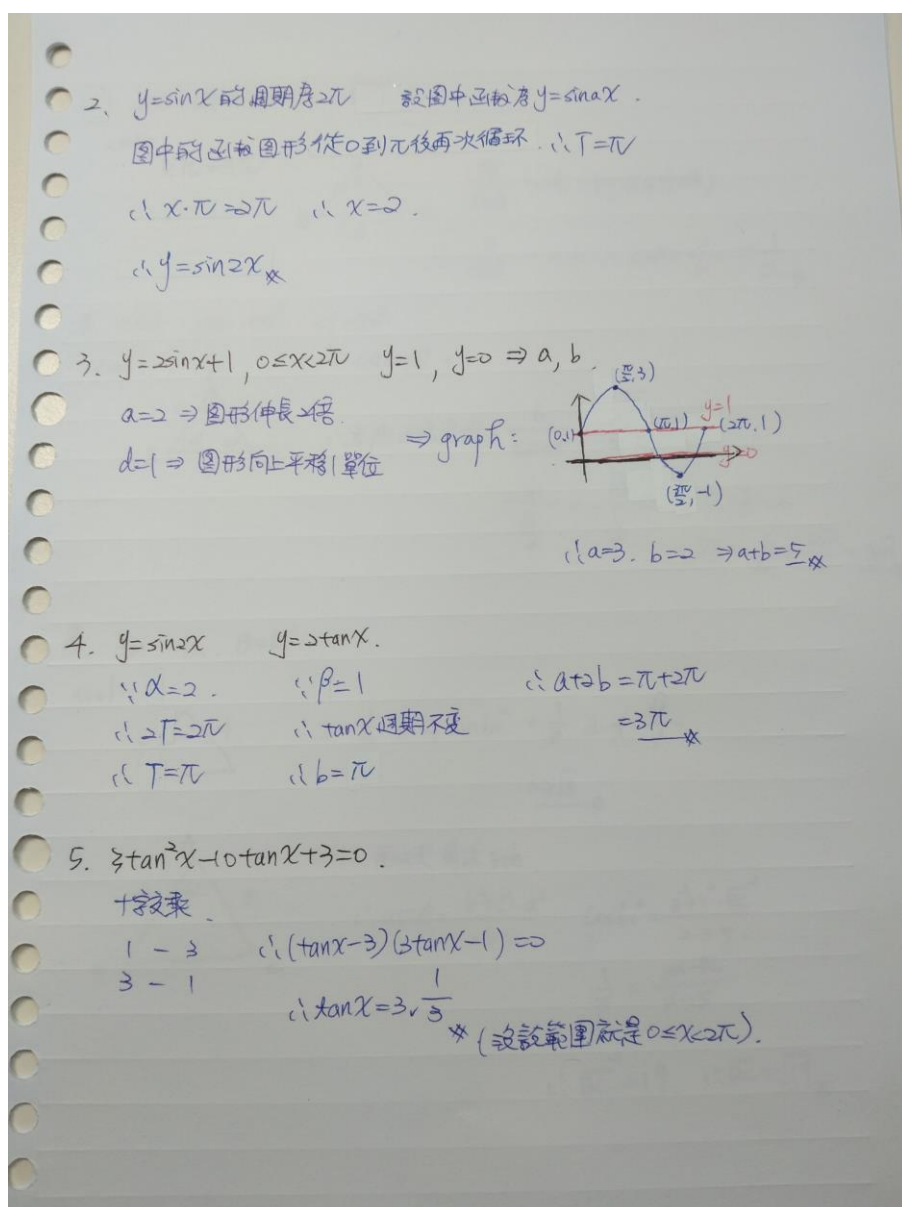 2、 y=sinx的週期為2π 設圖中函數為y=sinax.
圖中的函數圖形從0到π後再次循环.∴T=π
∴x·π=2π ∴x=2.
∴y=sin2x※
3. y=2sinx+1, 0≤x<2π y=1, y=0 ⇒ a, b.
a=2 ⇒ 圖形伸長2倍.
d=1 ⇒ 圖形向上平移1單位
⇒ graph:
(π/2, 3)
(0,1)
(π,1)
y=1
(2π, 1)
y=0
(3π/2, -1)
∴a=3. b=2 ⇒a+b=5※
4. y=sin2x y=2tanx.
∵α=2. ∵β=1 ∴a+2b=π+2π
∴2T=2π ∴tanx週期不变 =3π※
∴T=π ∴b=π
5. 3tan²x-10tanx+3=0.
十字交乘.
1 - 3 ∴(tanx-3)(3tanx-1)=0
3 - 1
∴tanx=3、1/3※ (沒說範圍就是0≤x<2π).